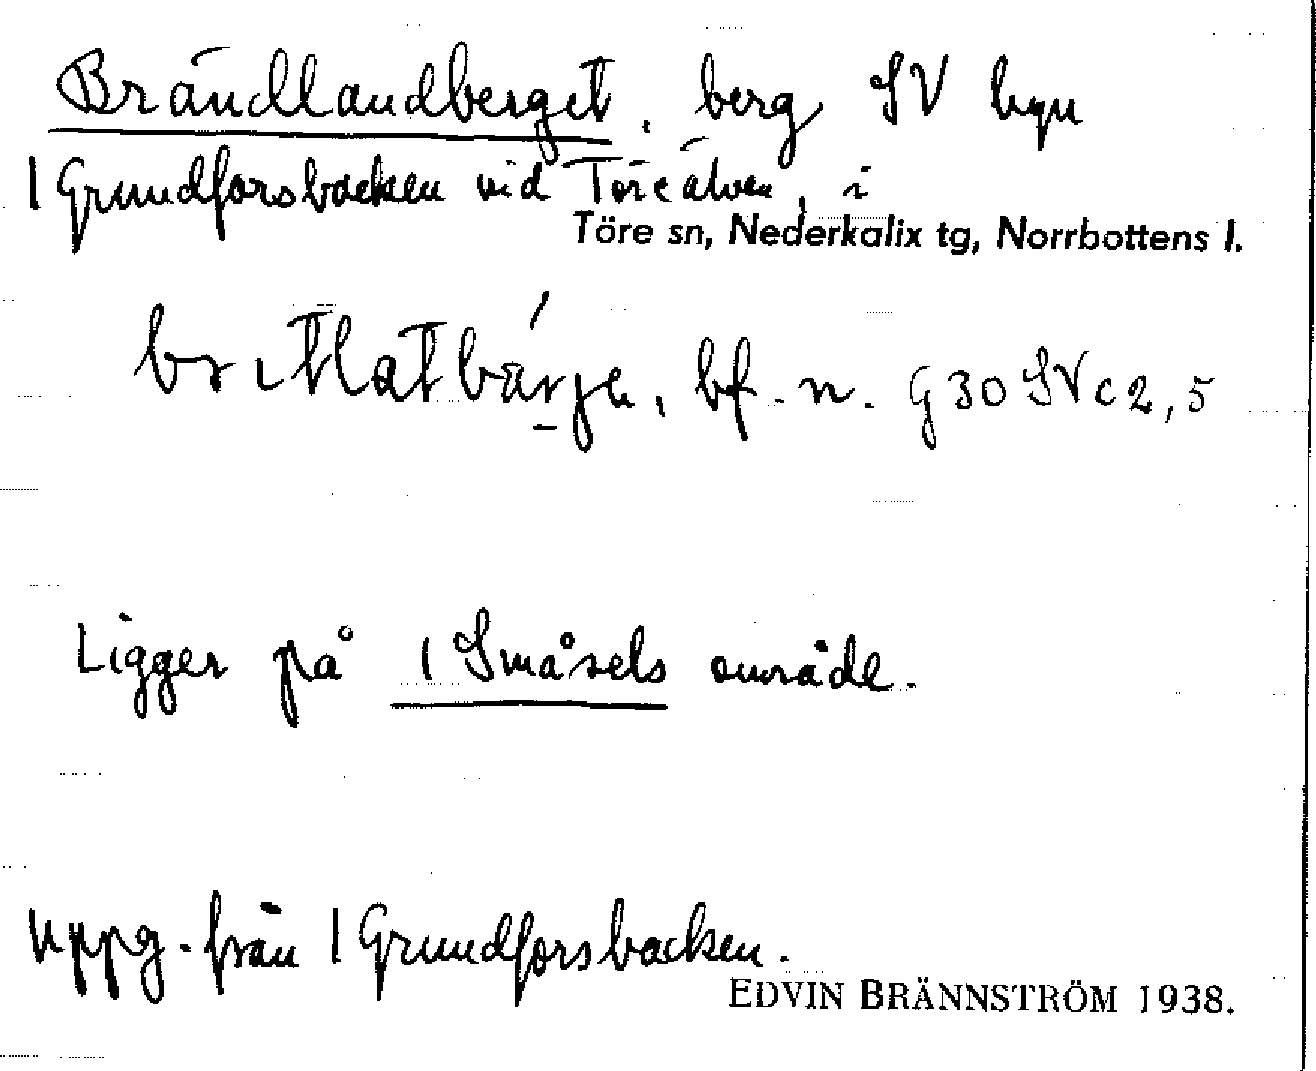 Brändlandberget, berg SV byn
| Grundforsbacken vid Töreälven, i
Töre sn, Nederkalix tg, Norrbottens l.
bf. n. G30 SV c 2,5
Ligger på | Småsels område.
Uppg. från | Grundforsbacken.
EDVIN BRÄNNSTRÖM 1938.